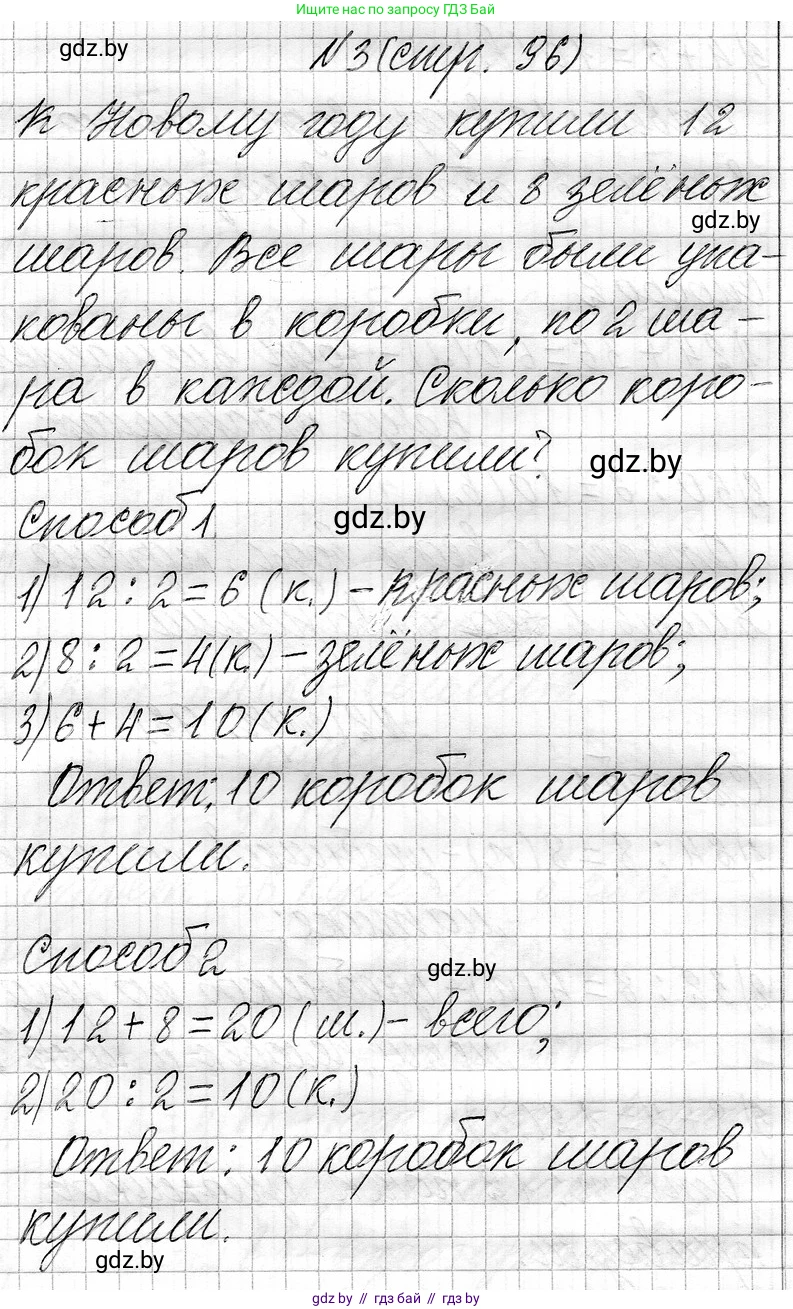 Ищите нас по запросу ГДЗ БАЙ
gdz.by
N 3 (стр. 96)
К Новому году купили 12
красных шаров и 8 зелёных
gdz.by
шаров. Все шары были упа-
кованы в коробки, по 2 ша-
ра в каждой. Сколько коро-
бок шаров купили? gdz.by
Способ 1. gdz.by
1) 12 : 2 = 6 (к.) – красных шаров;
2) 8 : 2 = 4 (к.) – зелёных шаров;
3) 6 + 4 = 10 (к.)
Ответ: 10 коробок шаров
купили.
Способ 2 gdz.by
1) 12 + 8 = 20 (ш.) – всего;
2) 20 : 2 = 10 (к.)
Ответ: 10 коробок шаров
купили.
gdz.by
gdz.by // гдз бай // gdz.by